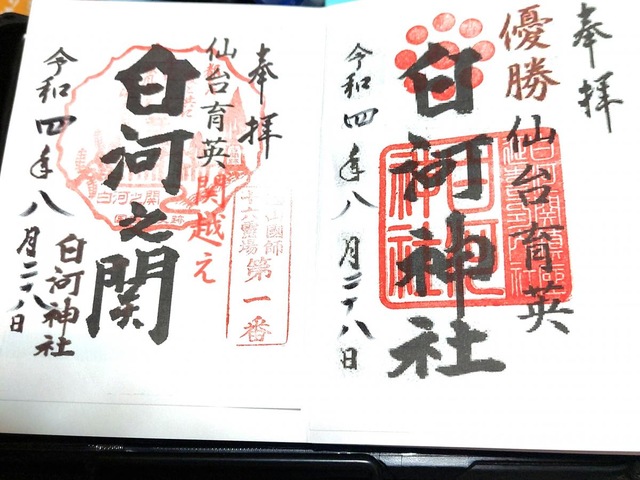 奉拝
優勝仙台育英
白河神社
令和四年八月二十八日
白河神社
奉拝
仙台育英関越え
白河之関
令和四年八月二十八日
白河神社
白河之関
第一番